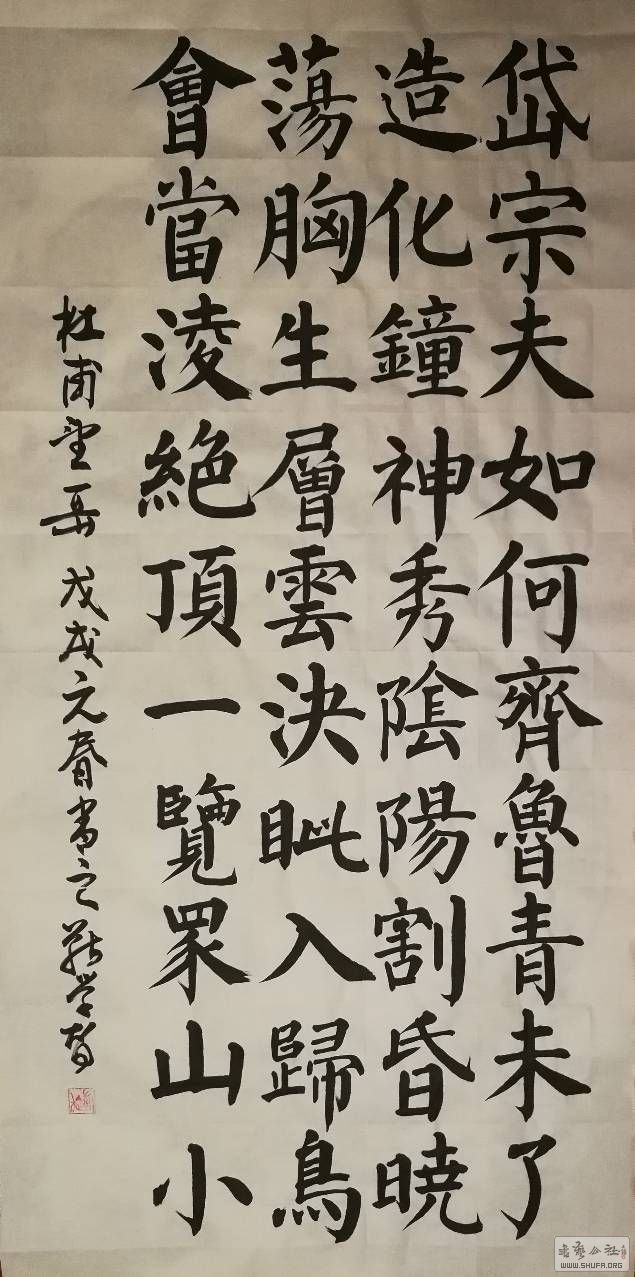 岱宗夫如何齊魯青未了
造化鐘神秀陰陽割昏曉
蕩胸生層雲決眦入歸鳥
會當淩絕頂一覽眾山小
杜甫望岳戊戌元春書之
WWW.SHUFA.ORG